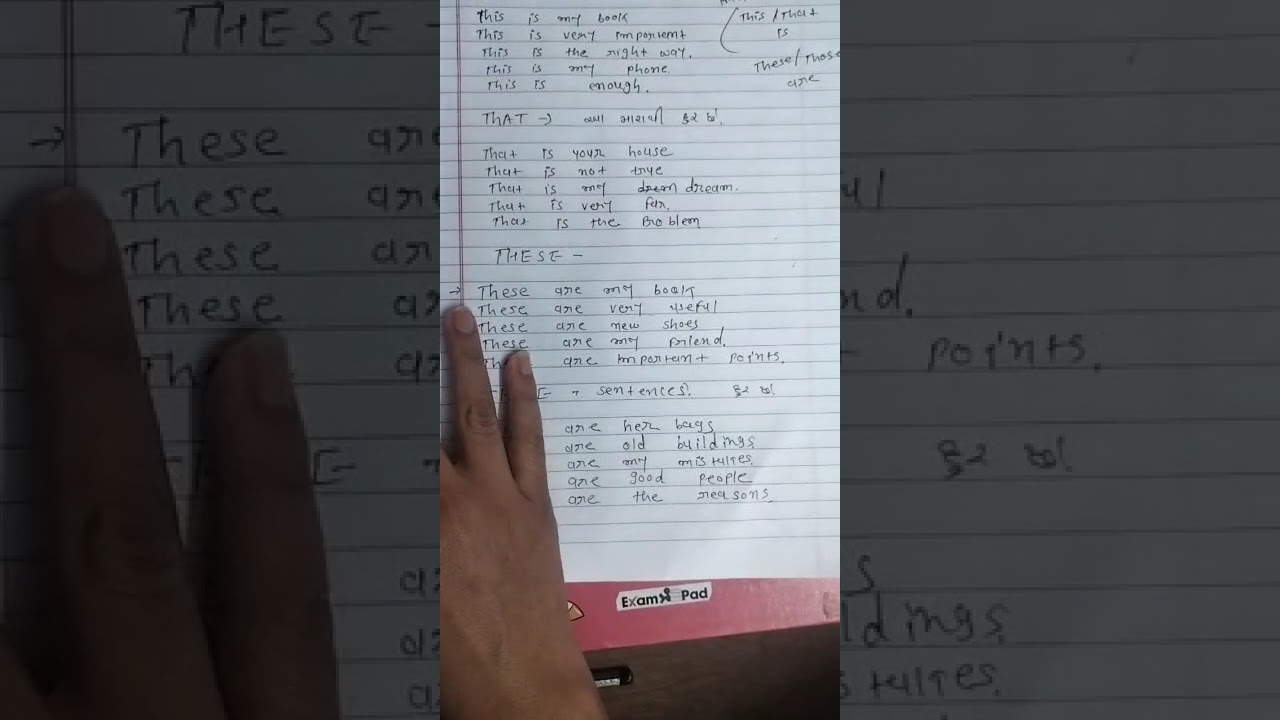 This is my book
This is very importent
This is the right way.
This is my phone.
This is enough.
This / That
is
These / Those
are
THAT →
That is your house
That is not true
That is my dream.
That is very far.
That is the Problem
THESE -
→ These are my book
These are very useful
These are new shoes
These are my friend.
are important points.
sentences.
are her bags
are old buildings
are my mistakes.
are good people
are the reasons.
Exam Pad